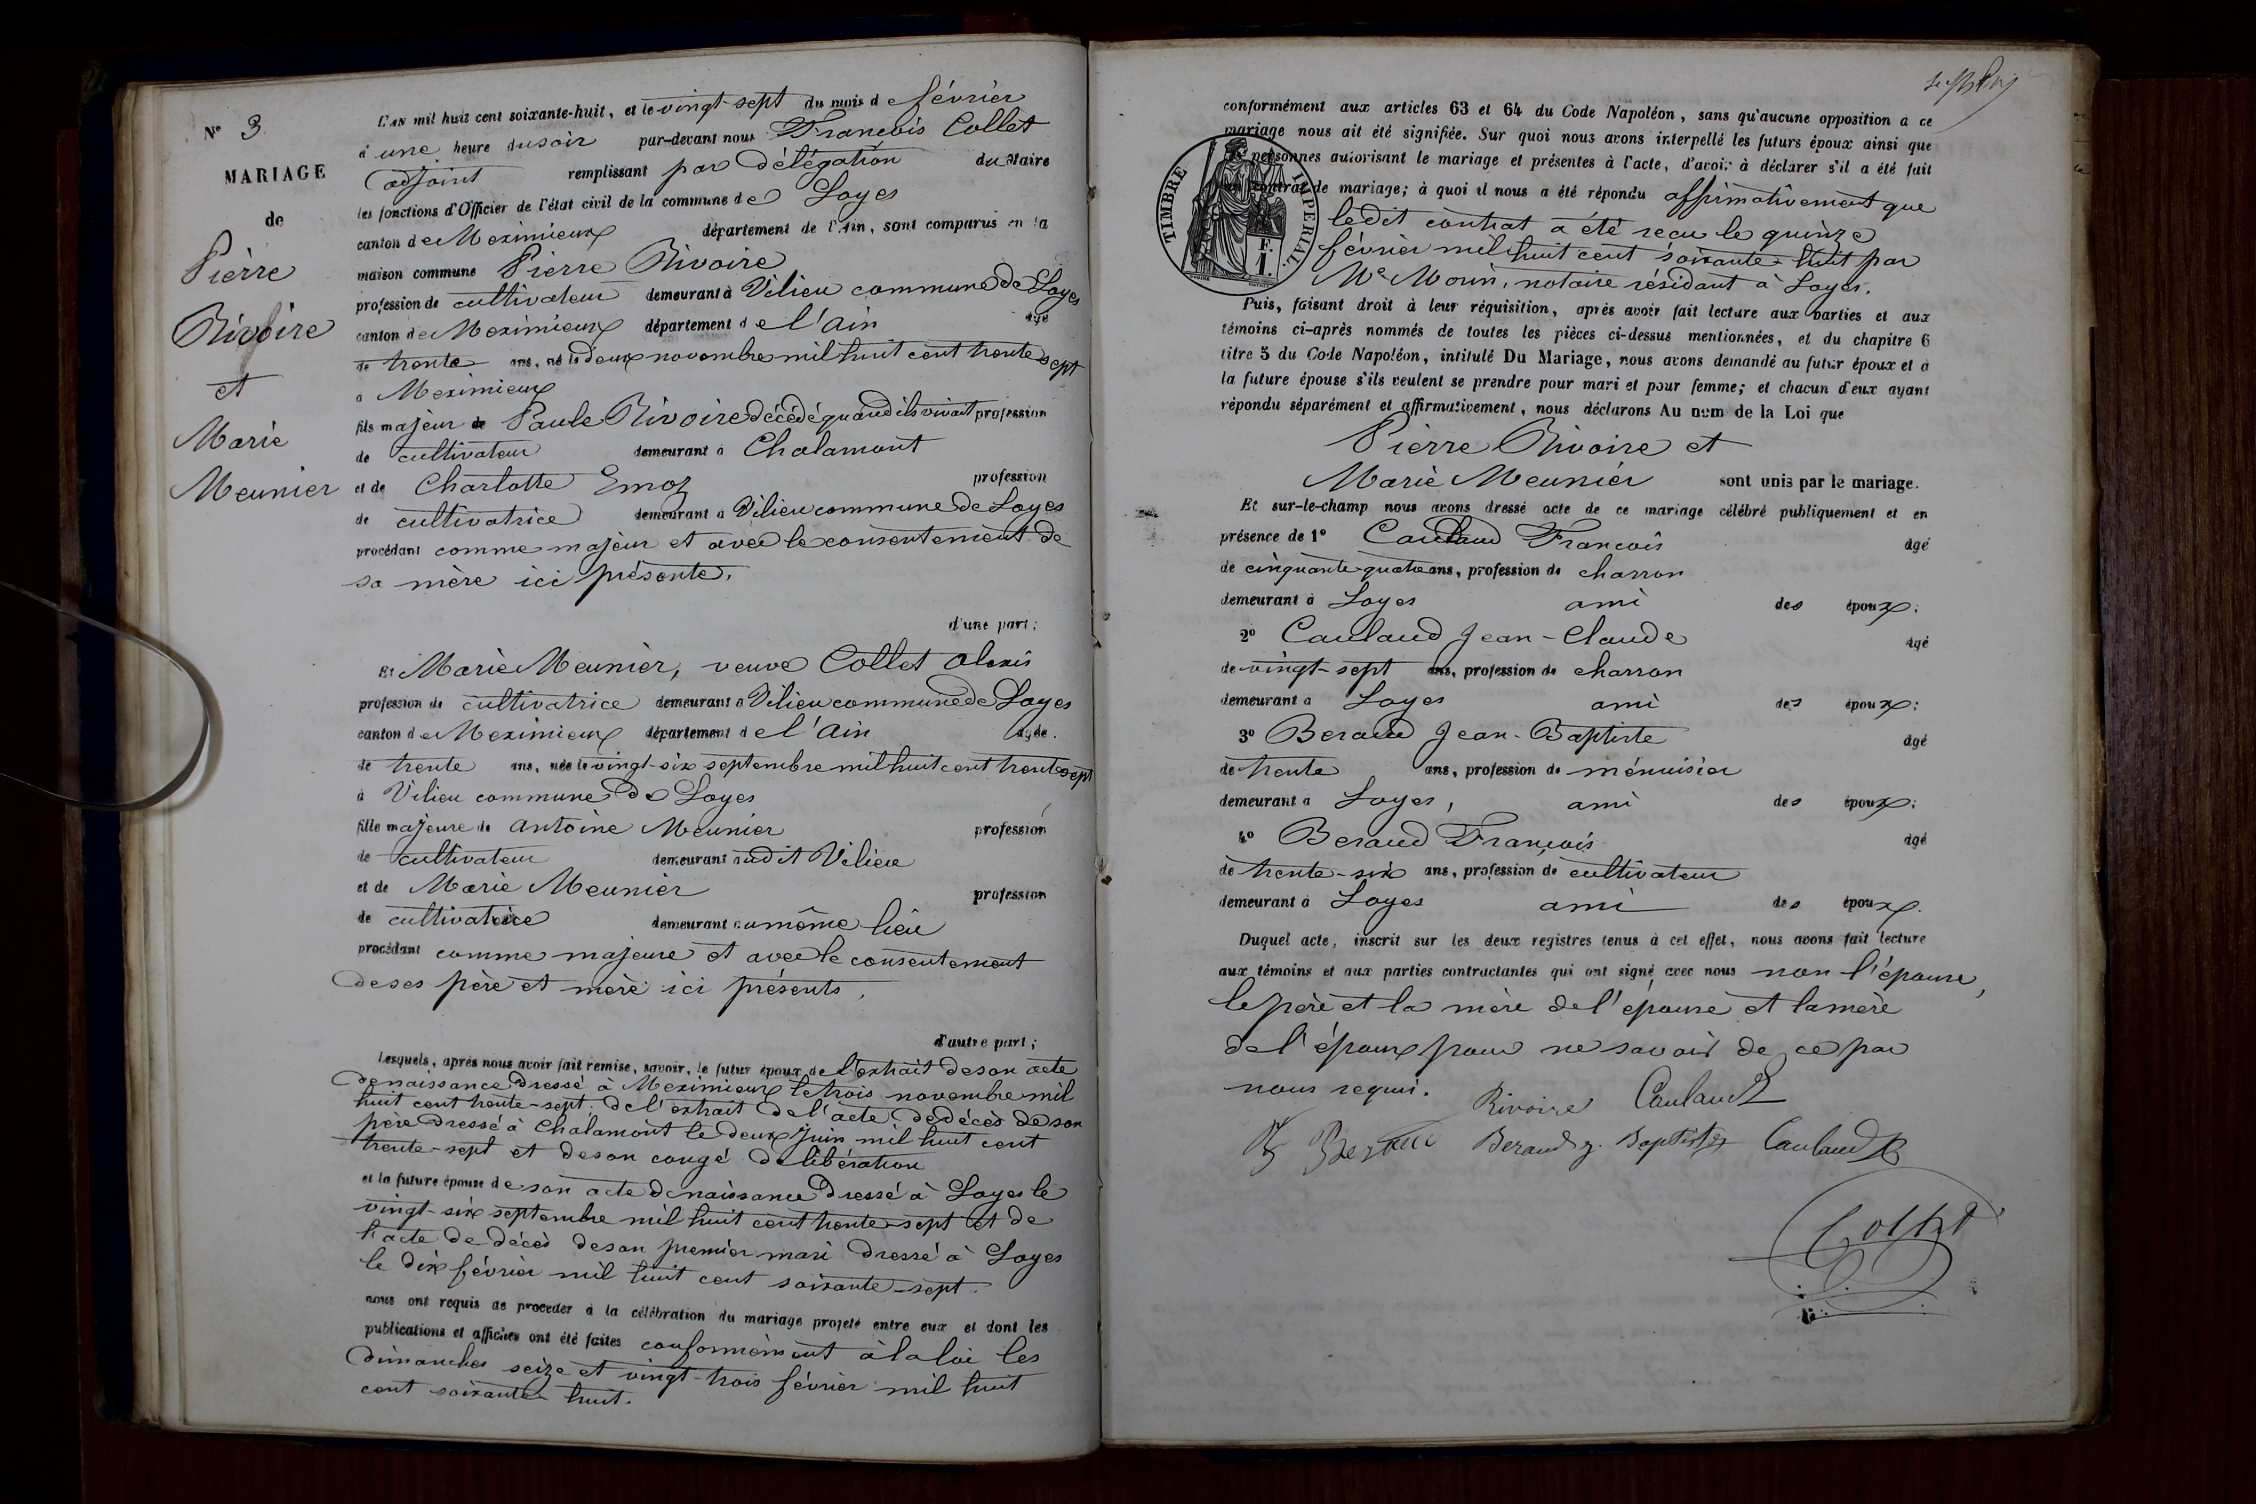 N° 3
MARIAGE
de
Pierre
Rivoire
et
Marie
Meunier
L'AN mil huit cent soixante-huit, et le vingt-sept du mois de février
à une heure du soir par-devant nous François Collet
adjoint remplissant par délégation du Maire
les fonctions d'Officier de l'état civil de la commune de Loyes
canton de Meximieux département de l'Ain, sont comparus en la
maison commune Pierre Rivoire
profession de cultivateur demeurant à Vilieu commune de Loyes
canton de Meximieux département de l'Ain âgé
de trente ans, né le deux novembre mil huit cent trente sept
à Meximieux
fils majeur de Paule Rivoire décédé quand ils vivait profession
de cultivateur demeurant à Chalamont
et de Charlotte Emoz profession
de cultivatrice demeurant à Vilieu commune de Loyes
procédant comme majeur et avec le consentement de
sa mère ici présente.
d'une part;
Et Marie Meunier, veuve Collet Alexis
profession de cultivatrice demeurant à Vilieu commune de Loyes
canton de Meximieux département de l'Ain âgée
de trente ans, née le vingt-six septembre mil huit cent trente sept
à Vilieu commune de Loyes
fille majeure de Antoine Meunier profession
de cultivateur demeurant audit Vilieu
et de Marie Meunier profession
de cultivatrice demeurant au même lieu
procédant comme majeure et avec le consentement
de ses père et mère ici présents.
d'autre part;
Lesquels, après nous avoir fait remise, savoir, le futur époux de l'extrait de son acte
de naissance dressé à Meximieux le trois novembre mil
huit cent trente-sept; de l'extrait de l'acte de décès de son
père dressé à Chalamont le deux juin mil huit cent
trente-sept et de son congé de libération
et la future épouse de son acte de naissance dressé à Loyes le
vingt-six septembre mil huit cent trente-sept et de
l'acte de décès de son premier mari dressé à Loyes
le dix février mil huit cent soixante-sept.
nous ont requis de procéder à la célébration du mariage projeté entre eux et dont les
publications et affiches ont été faites conformément à la loi les
dimanches seize et vingt-trois février mil huit
cent soixante huit.
conformément aux articles 63 et 64 du Code Napoléon, sans qu'aucune opposition a ce
mariage nous ait été signifiée. Sur quoi nous avons interpellé les futurs époux ainsi que
personnes autorisant le mariage et présentes à l'acte, d'avoir à déclarer s'il a été fait
un contrat de mariage; à quoi il nous a été répondu affirmativement que
TIMBRE IMPERIAL.
E.
I.
ledit contrat a été reçu le quinze
février mil huit cent soixante huit par
Me Morin, notaire résidant à Loyes.
Puis, faisant droit à leur réquisition, après avoir fait lecture aux parties et aux
témoins ci-après nommés de toutes les pièces ci-dessus mentionnées, et du chapitre 6
titre 5 du Code Napoléon, intitulé Du Mariage, nous avons demandé au futur époux et à
la future épouse s'ils veulent se prendre pour mari et pour femme; et chacun d'eux ayant
répondu séparément et affirmativement, nous déclarons Au nom de la Loi que
Pierre Rivoire et
Marie Meunier sont unis par le mariage.
Et sur-le-champ nous avons dressé acte de ce mariage célébré publiquement et en
présence de 1° Caulaud François âgé
de cinquante-quatre ans, profession de charron
demeurant à Loyes ami des époux;
2° Caulaud Jean-Claude âgé
de vingt-sept ans, profession de charron
demeurant à Loyes ami des époux;
3° Beraud Jean-Baptiste âgé
de trente ans, profession de ménuisier
demeurant à Loyes, ami des époux;
4° Beraud François âgé
de trente-six ans, profession de cultivateur
demeurant à Loyes ami des époux.
Duquel acte, inscrit sur les deux registres tenus à cet effet, nous avons fait lecture
aux témoins et aux parties contractantes qui ont signé avec nous non l'épouse,
le père et la mère de l'épouse et la mère
de l'époux pour ne savoir de ce par
nous requis.
Rivoire Caulaud
Beraud Beraud J. Baptiste Caulaud
Collet